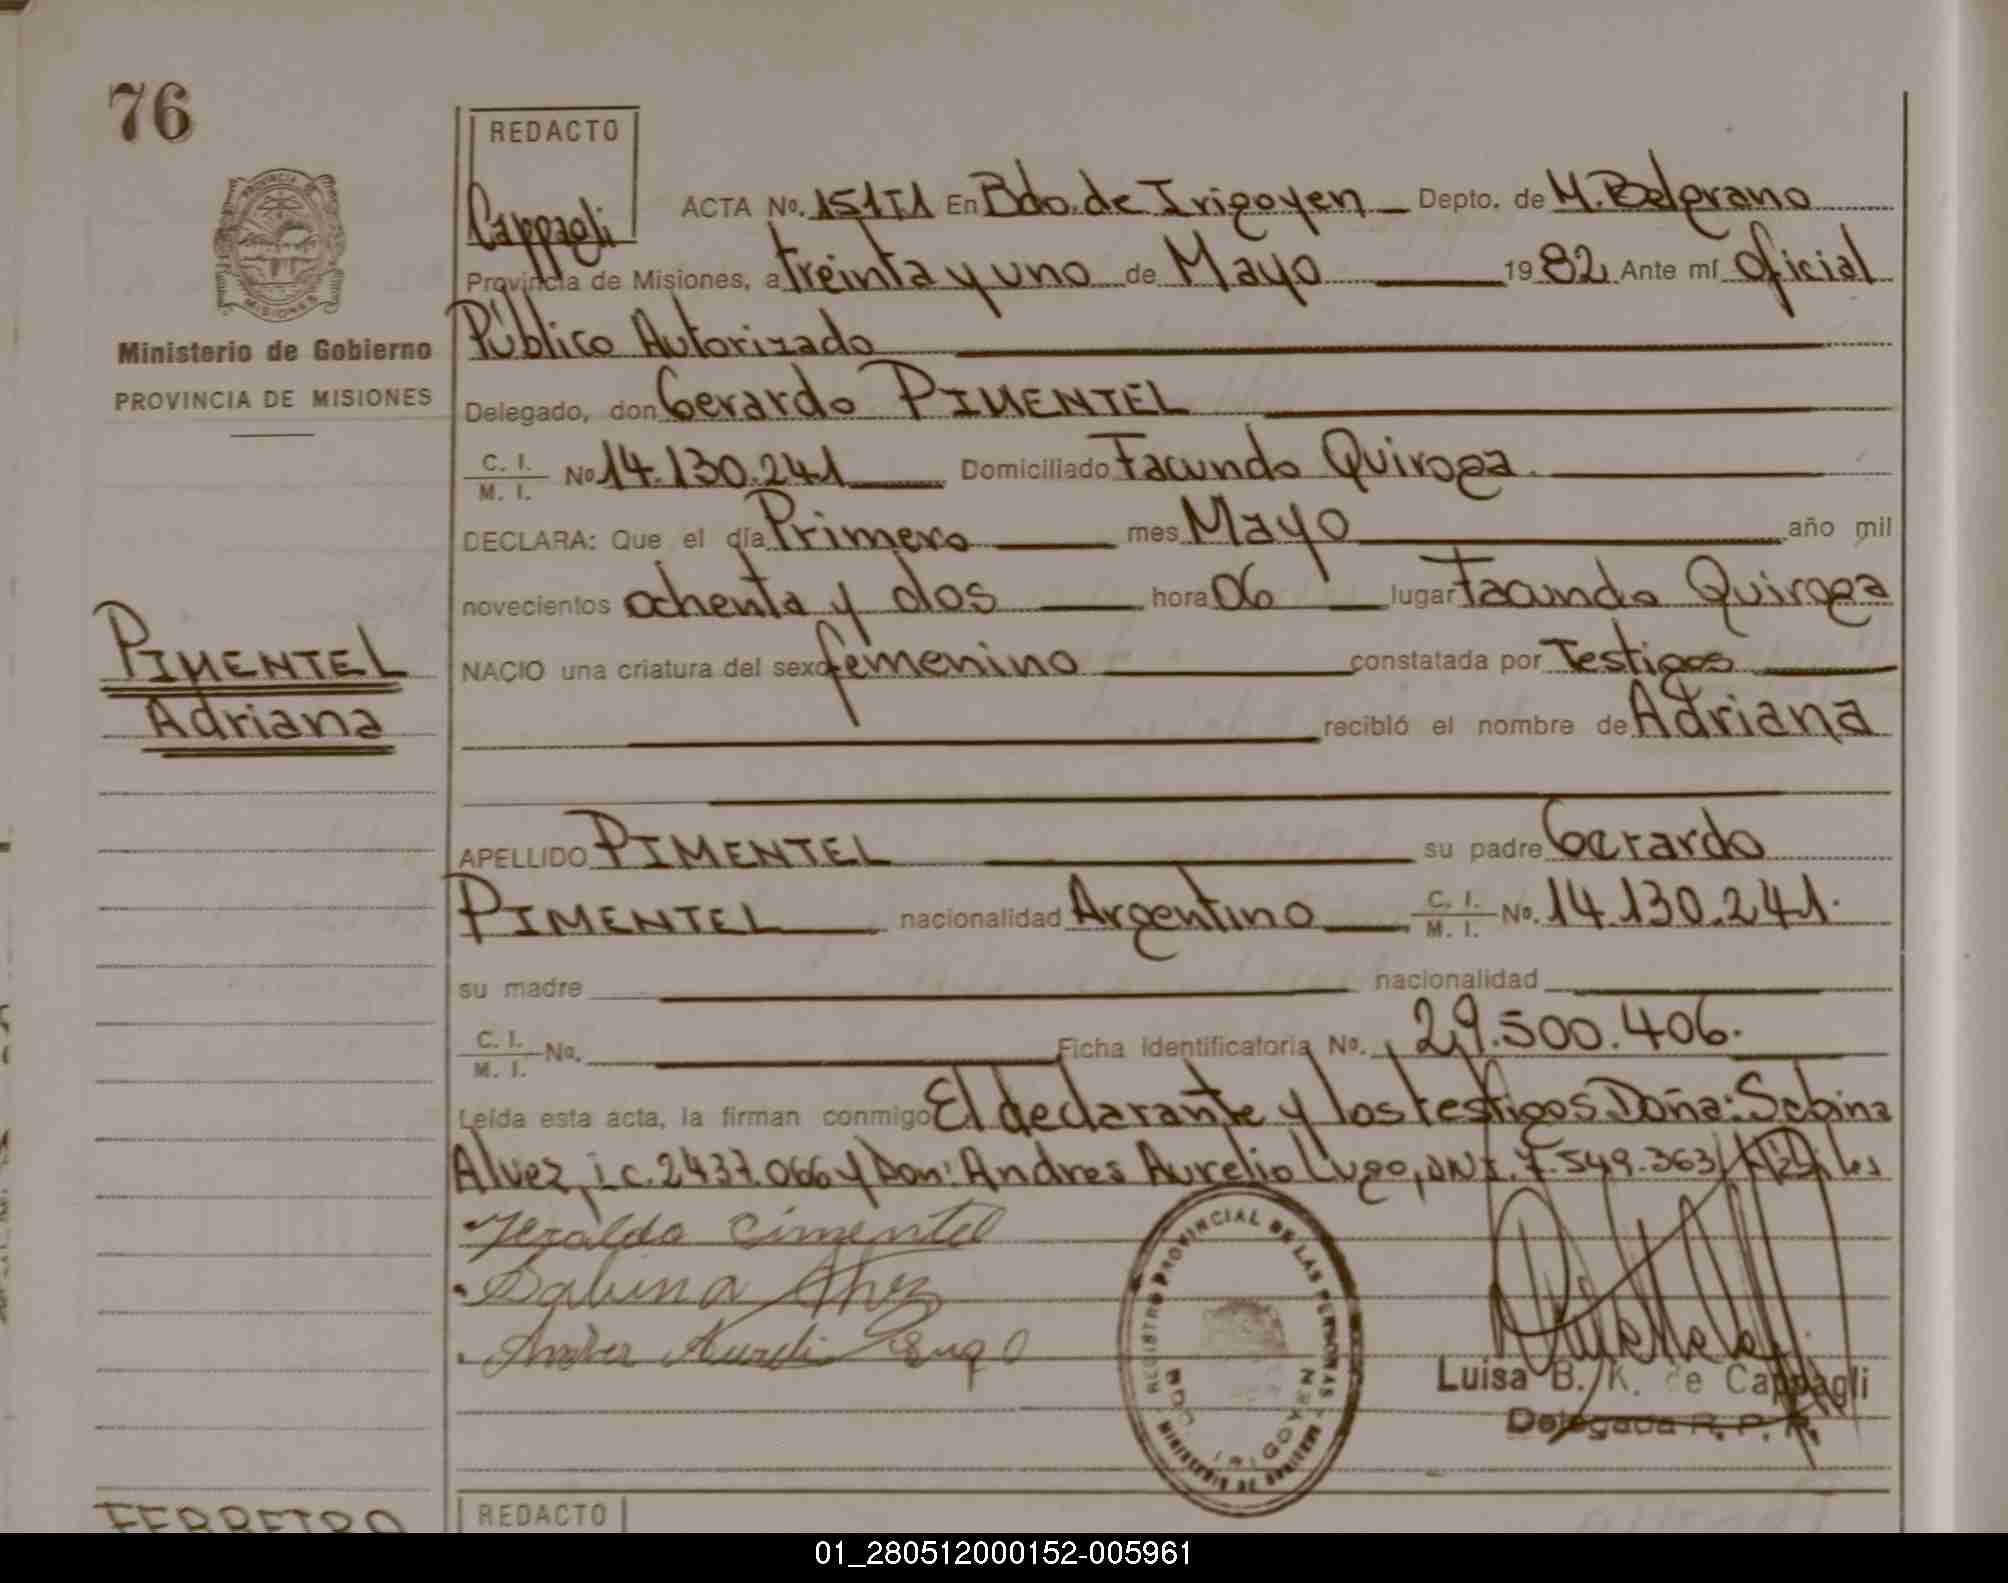 76
REDACTO
Cappagli
ACTA No. 151T1 En Bdo. de Irigoyen Depto. de M. Belgrano
Provincia de Misiones, a treinta y uno de Mayo 1982 Ante mí Oficial
Público Autorizado
Delegado, don Gerardo PIMENTEL
C. I. / M. I. No 14.130.241 Domiciliado Facundo Quiroga
DECLARA: Que el día Primero mes Mayo año mil
novecientos ochenta y dos hora 06 lugar Facundo Quiroga
NACIO una criatura del sexo femenino constatada por Testigos
recibió el nombre de Adriana
APELLIDO PIMENTEL su padre Gerardo
PIMENTEL nacionalidad Argentino C. I. / M. I. No. 14.130.241.
su madre nacionalidad
C. I. / M. I. No. Ficha Identificatoria No. 29.500.406.
Leída esta acta, la firman conmigo El declarante y los testigos Doña: Sabina
Alvez, i.c. 2437.066 y Don: Andres Aurelio Lugo, DNI. 7.549.363
Jeraldo Cimentel
Sabina Alvez
Andres Aureli Lugo
REGISTRO PROVINCIAL DE LAS PERSONAS
IRIGOYEN
Luisa B. K. de Cappagli
Delegada R. P. P.
PROVINCIA DE
MISIONES
Ministerio de Gobierno
PROVINCIA DE MISIONES
PIMENTEL
Adriana
FERREIRO
REDACTO
01_280512000152-005961